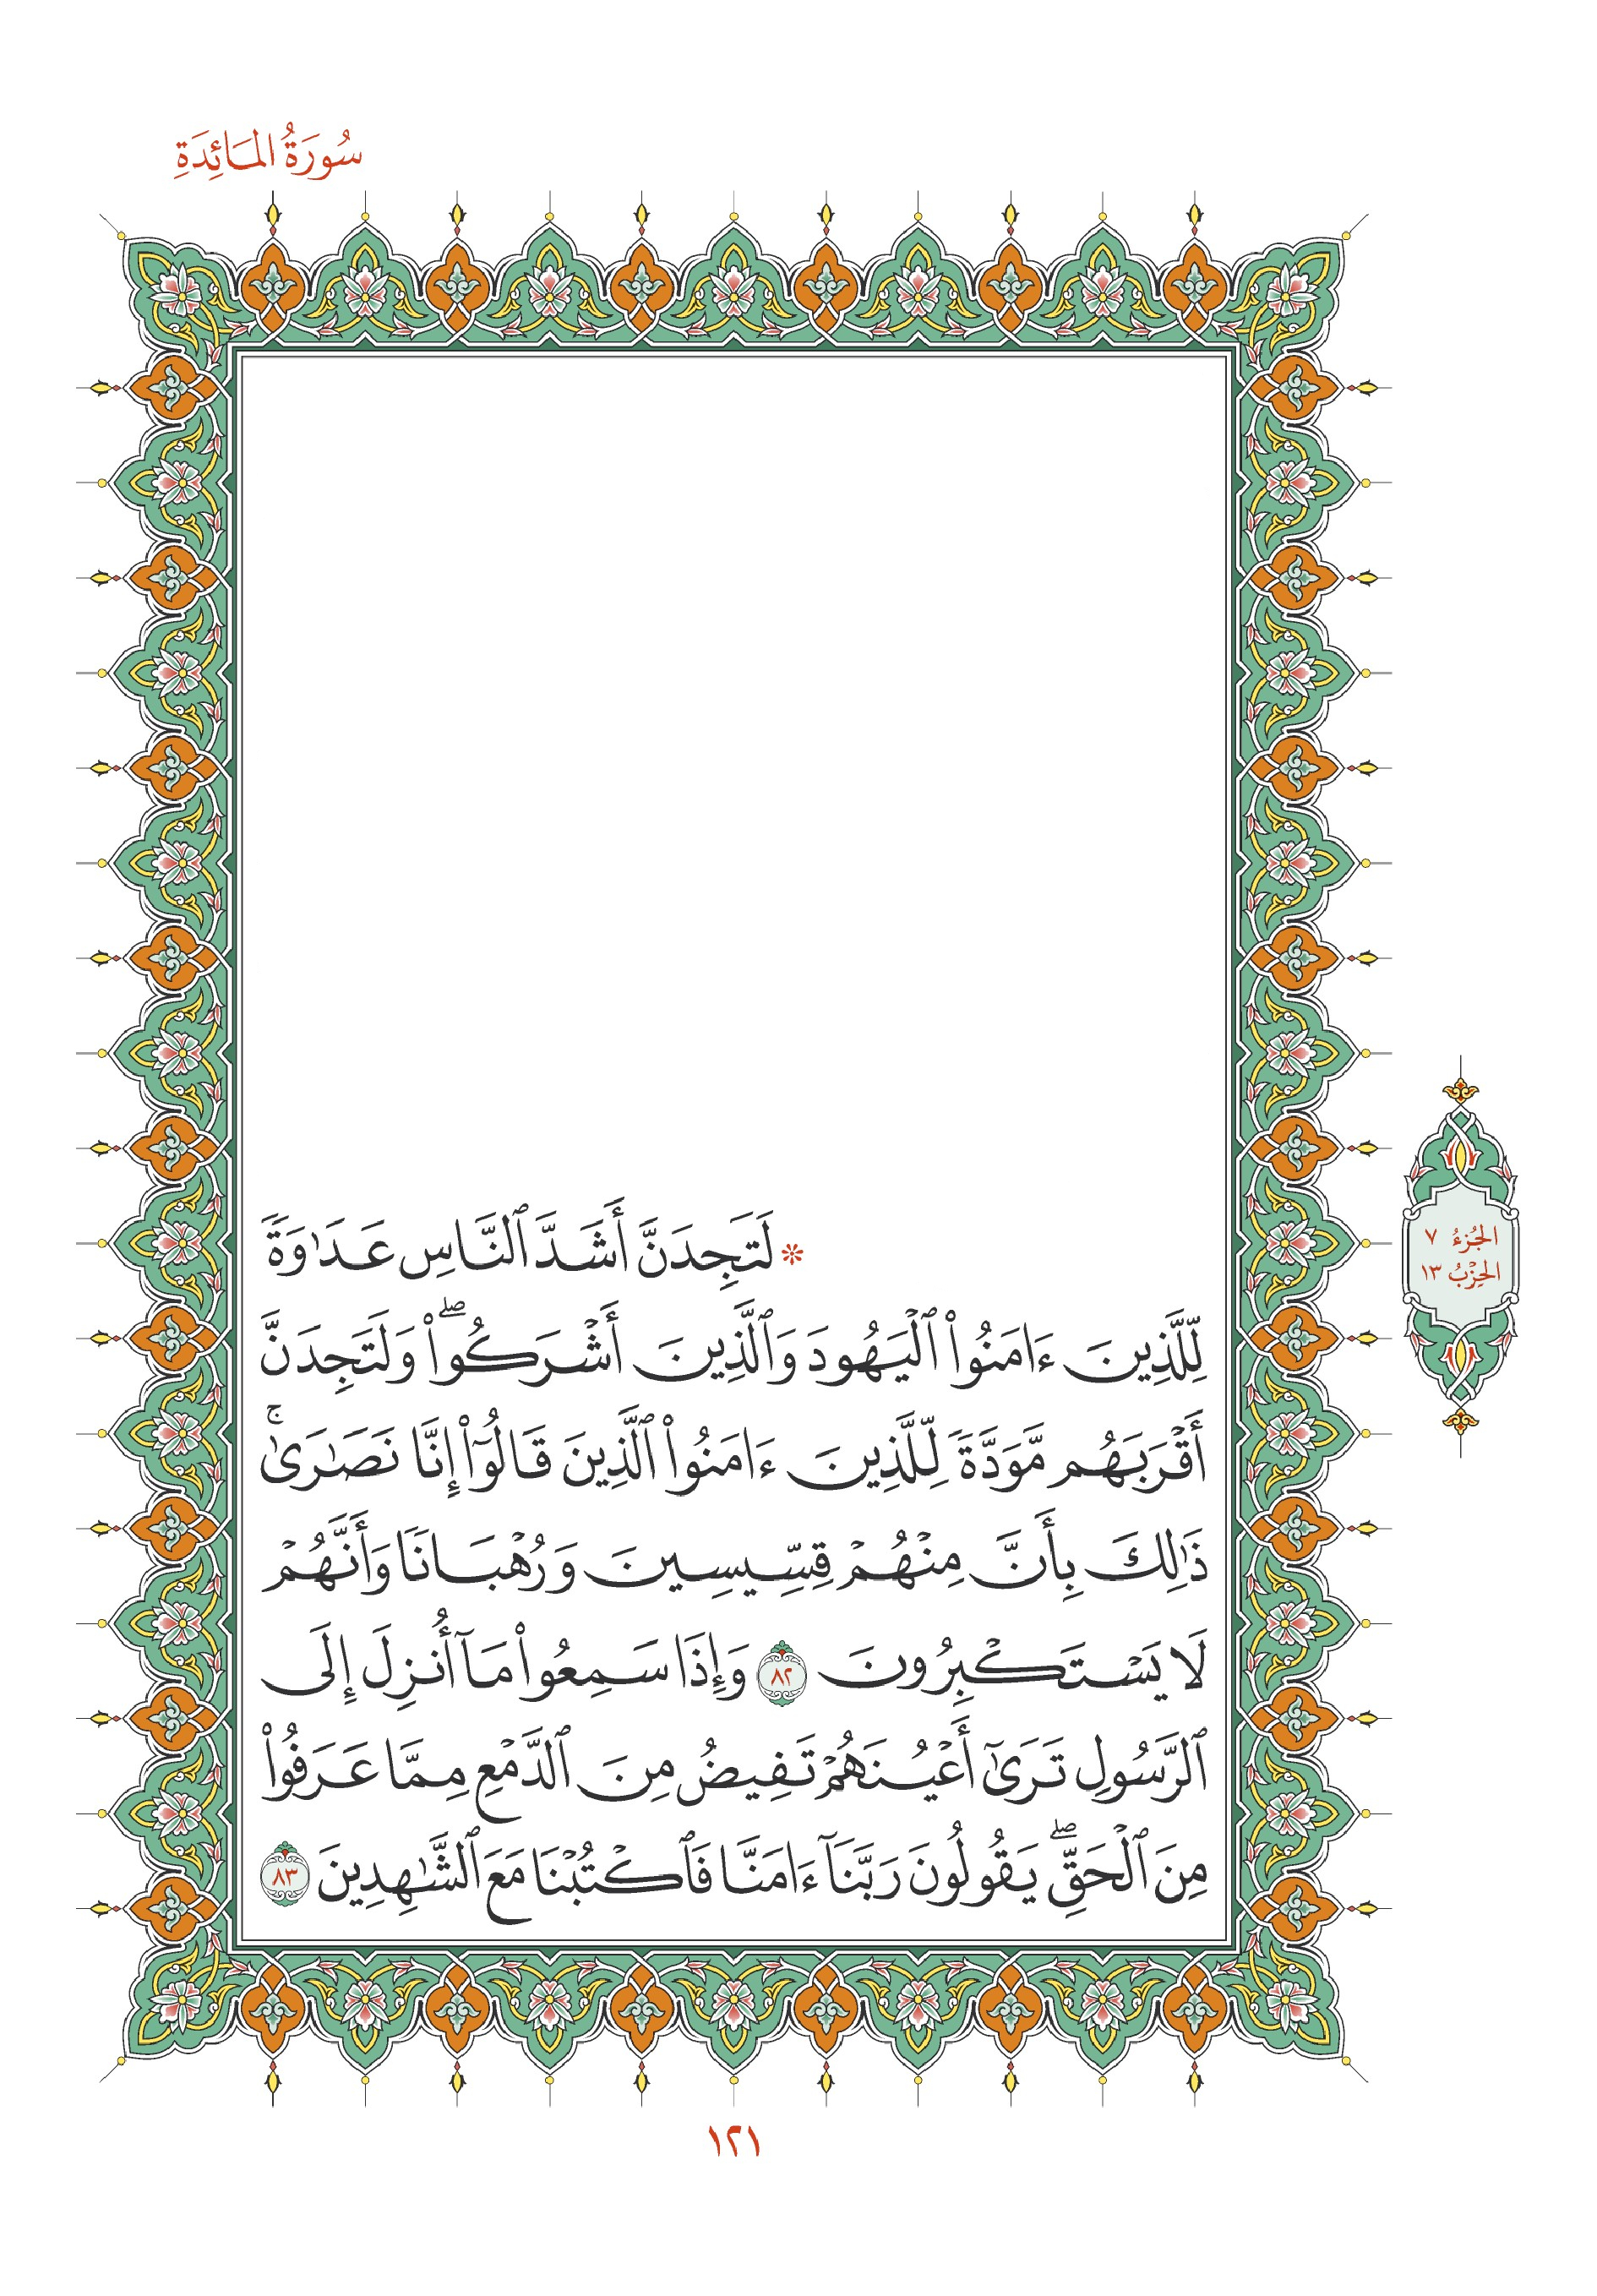 سُورَةُ المَائِدَةِ
۞ لَتَجِدَنَّ أَشَدَّ ٱلنَّاسِ عَدَٰوَةً
لِّلَّذِينَ ءَامَنُواْ ٱلۡيَهُودَ وَٱلَّذِينَ أَشۡرَكُواْۖ وَلَتَجِدَنَّ
أَقۡرَبَهُم مَّوَدَّةً لِّلَّذِينَ ءَامَنُواْ ٱلَّذِينَ قَالُوٓاْ إِنَّا نَصَٰرَىٰۚ
ذَٰلِكَ بِأَنَّ مِنۡهُمۡ قِسِّيسِينَ وَرُهۡبَانًا وَأَنَّهُمۡ
لَا يَسۡتَكۡبِرُونَ ٨٢ وَإِذَا سَمِعُواْ مَآ أُنزِلَ إِلَى
ٱلرَّسُولِ تَرَىٰٓ أَعۡيُنَهُمۡ تَفِيضُ مِنَ ٱلدَّمۡعِ مِمَّا عَرَفُواْ
مِنَ ٱلۡحَقِّۖ يَقُولُونَ رَبَّنَآ ءَامَنَّا فَٱكۡتُبۡنَا مَعَ ٱلشَّٰهِدِينَ ٨٣
الجُزءُ ٧
الحِزۡبُ ١٣
١٢١